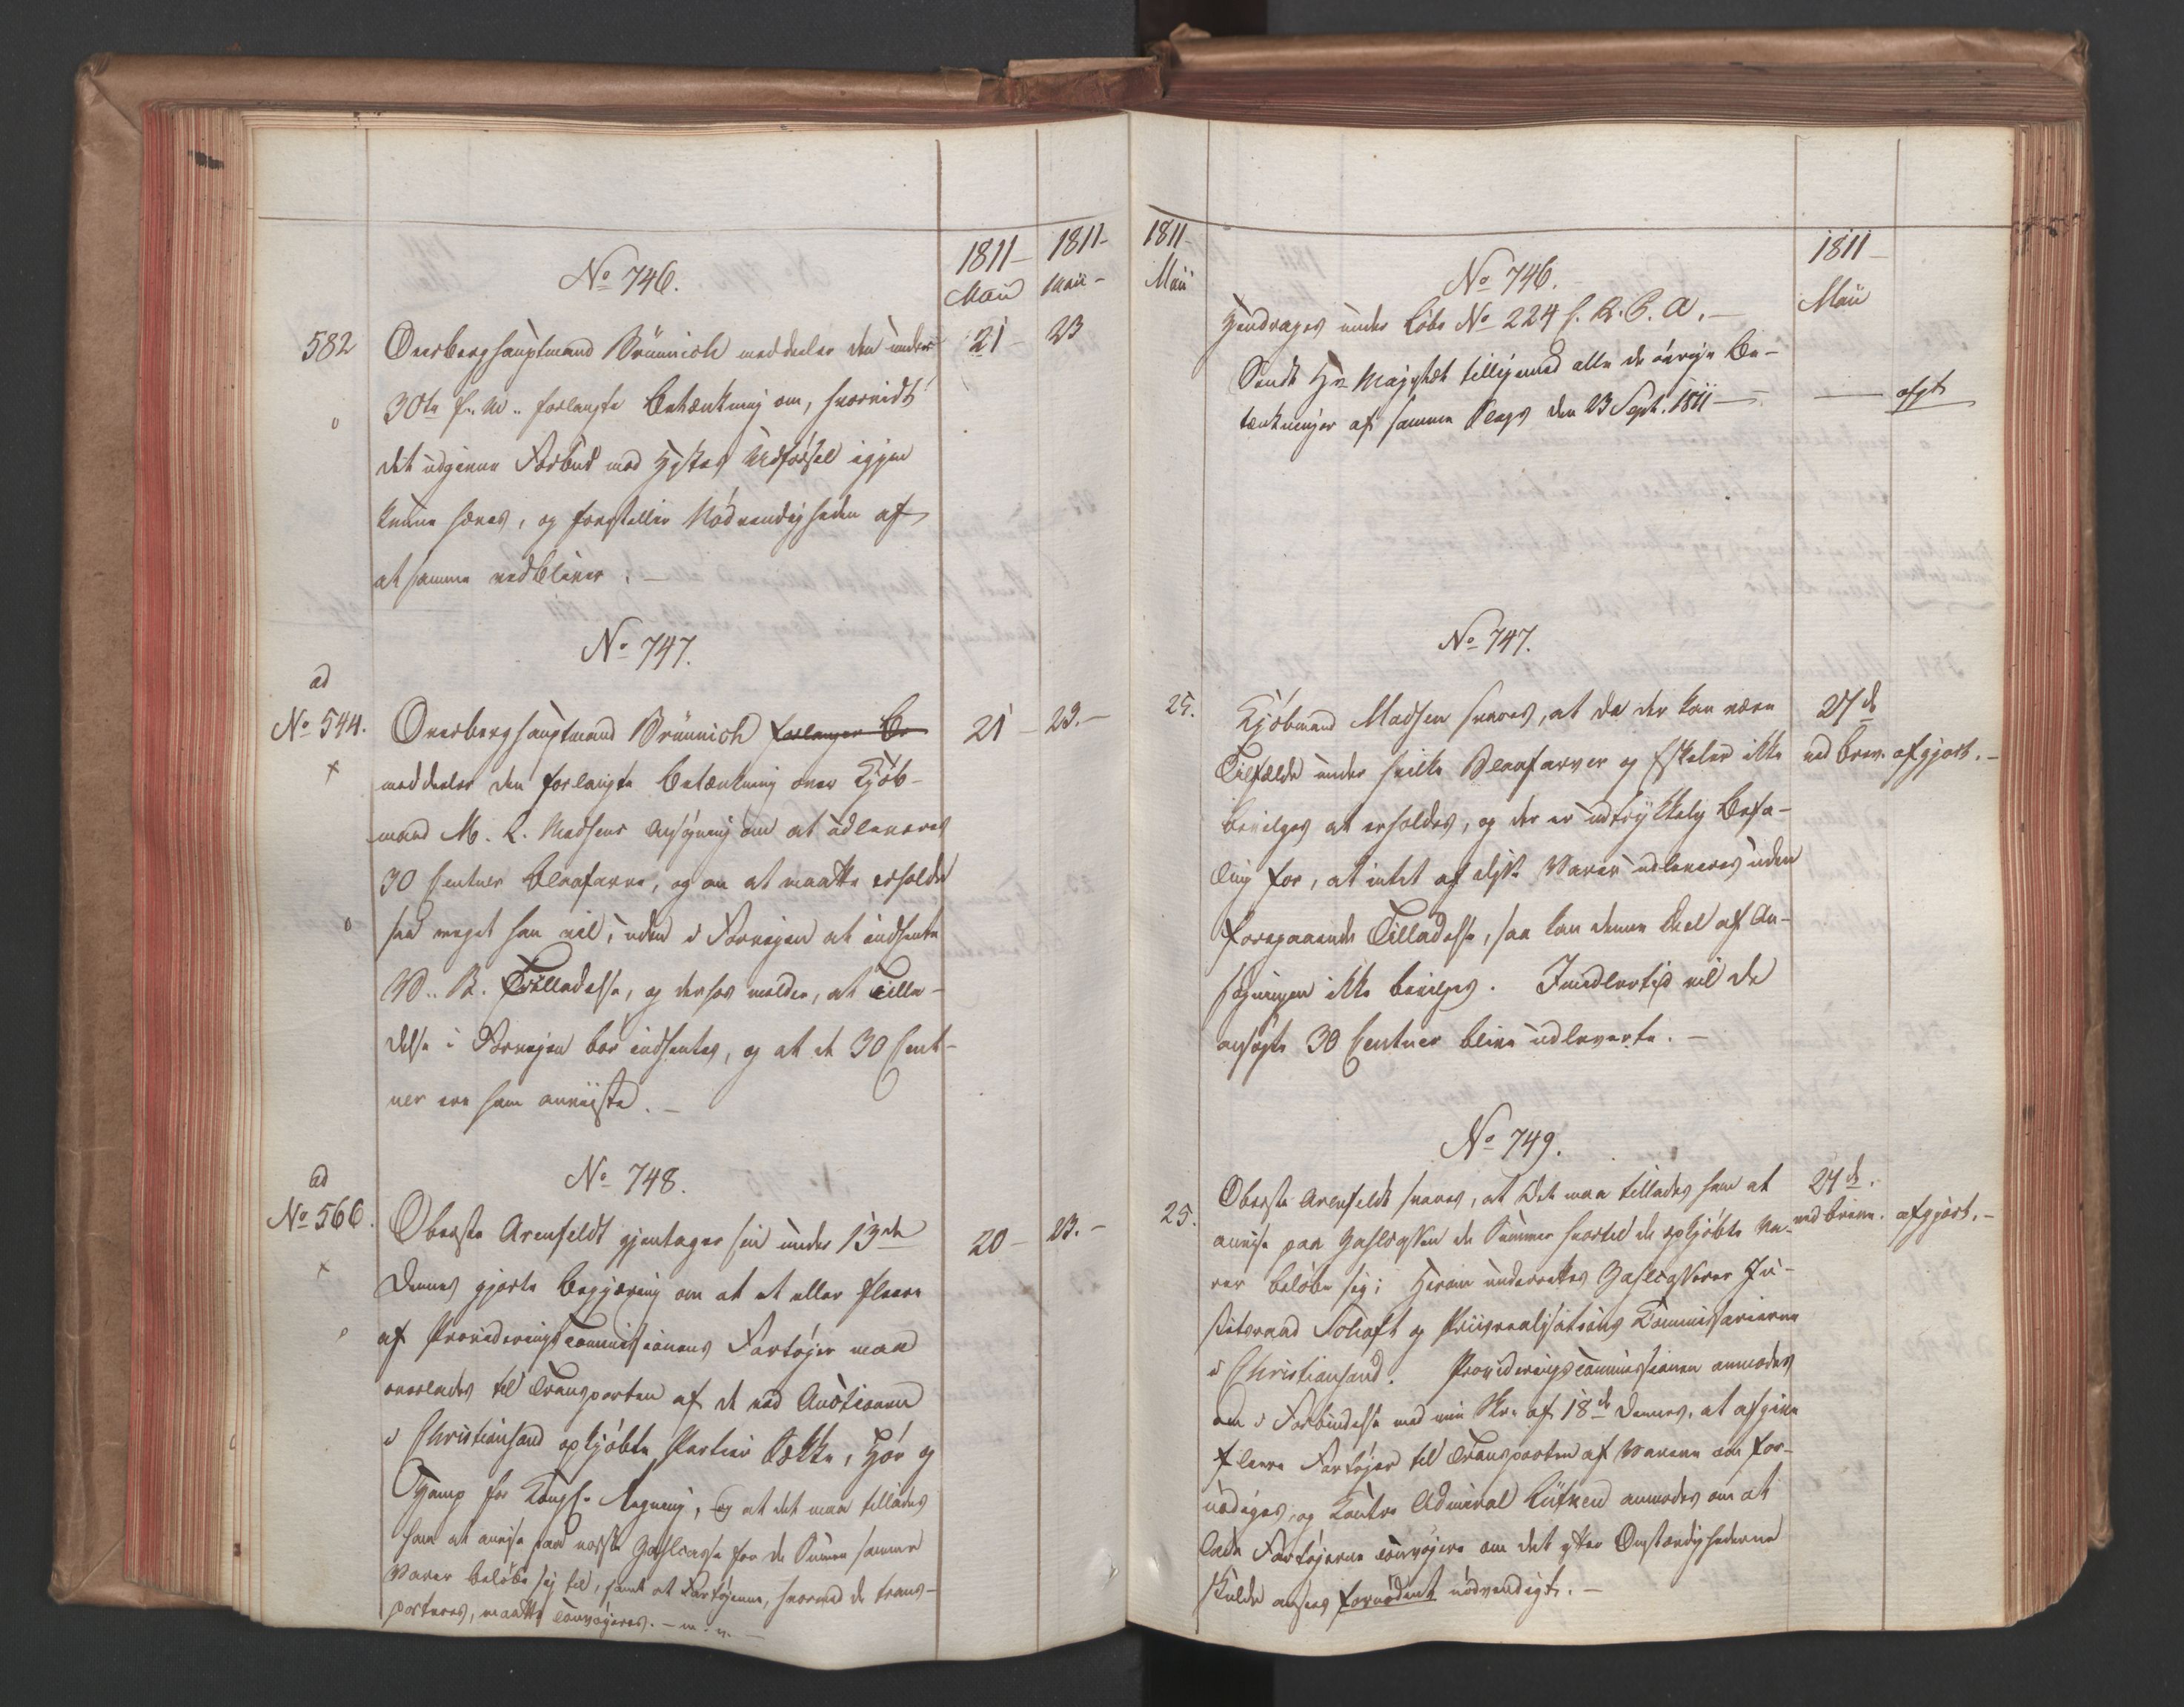 1811 –
Maii
1811 –
Maii –
No 746.
582
Overberghauptmand Brünnich meddeler den under
21 –
23
30te f. M. forlangte Betænkning om, hvorvidt
det udgivne Forbud mod Hestes Udførsel igjen
kunne hæves, og forestiller Nødvendigheden af
at samme vedbliver. –
No 747.
ad
No 544.
Overberghauptmand Brünnich forlanger Be
21 –
23. –
meddeler den forlangte Betænkning over Kjøb-
mand M. L. Madsens Ansøgning om at udleveres
30 Centner Blaafarve, og om at maatte erholde
saa meget han vil, uden i Forveien at indhente
V. R. Tilladelse, og derhos melder, at Tilla-
delse i Forveien bør indhentes, og at de 30 Cent-
ner ere ham anviiste. –
No 748.
ad
No 566.
Oberste Arenfeldt gjentager sin under 13de
20 –
23. –
Dennes gjorte Begjæring om at et eller fleere
af Provideringscommissionens Fartøjer maa
overlades til Transporten af de ved Auctionen
i Christiansand opkjøbte Partier Sække, Hør og
Hamp for Kongl. Regning, og at det maa tillades
ham at anvise paa næste Zahlcasse for de Summer samme
Varer beløbe sig til, samt at Fartøjerne, hvormed de trans-
porteres, maatte convojeres. – m. v. –
1811 –
Maii
1811 –
Maii
No 746.
Hendrages under Løbe No 224 f. R. C. A. –
Sendt Hs Majestæt tilligemed alle de øvrige Be-
tænkninger af samme Slags den 23 Sept. 1811 –
afgt
No 747.
25.
Kjøbmand Madsen svares, at da der kan være
27de
Tilfælde under hvilke Blaafarver og Eskeler ikke
ved Brev.
afgjort. –
bevilges at erholdes, og der er udtrykkelig Befa-
ling for, at intet af disse Varer udleveres uden
foregaaende Tilladelse, saa kan denne Deel af An-
søgningen ikke bevilges. Imidlertid vil de
ansøgte 30 Centner blive udleverte. –
No 749.
25.
Oberste Arenfeldt svares, at det maa tillades ham at
27de.
anvise paa Zahlcassen de Summer hvortil de opkjøbte Va-
ved Breve.
afgjort. –
rer beløbe sig; Herom underrettes Zahlcasserer Ju-
stitsraad Toleft og Priisrealisations Commissarierne
i Christiansand. Provideringscommissionen anmodes
om i Forbindelse med min Skr. af 18de Dennes, at afgive
fleere Fartøjer til Transporten af Varerne om for-
nødiges, og Contre Admiral Lütken anmodes om at
lade Fartøjerne convojere om det efter Omstændighederne
skulde ansees fornødent nødvendigt. –